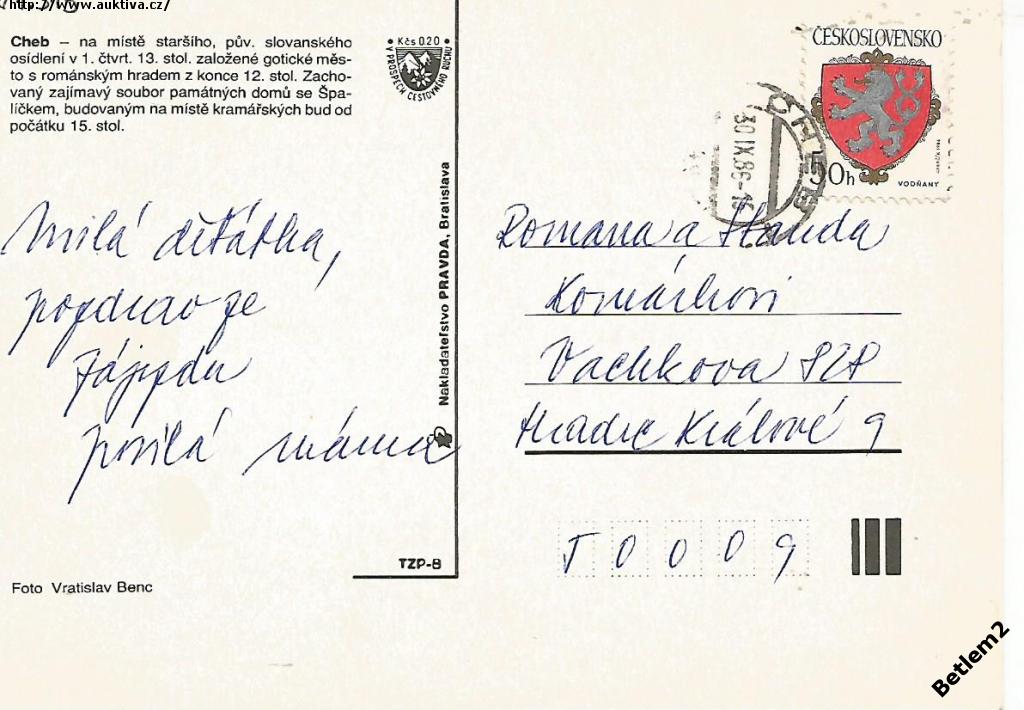 http://www.auktiva.cz/
Cheb – na místě staršího, pův. slovanského
osídlení v 1. čtvrt. 13. stol. založené gotické měs-
to s románským hradem z konce 12. stol. Zacho-
vaný zajímavý soubor památných domů se Špa-
líčkem, budovaným na místě kramářských bud od
počátku 15. stol.
Kčs 020
V PROSPĚCH CESTOVNÍHO RUCHU
ČESKOSLOVENSKO
50h
VODŇANY
CHEB
30.IX.86-16
Milá děťátka,
pozdrav ze
zájezdu
posílá máma
Nakladateľstvo PRAVDA, Bratislava
Romana a Standa
Komárkovi
Vachkova 828
Hradec Králové 9
50009
TZP-8
Foto Vratislav Benc
Betlem2